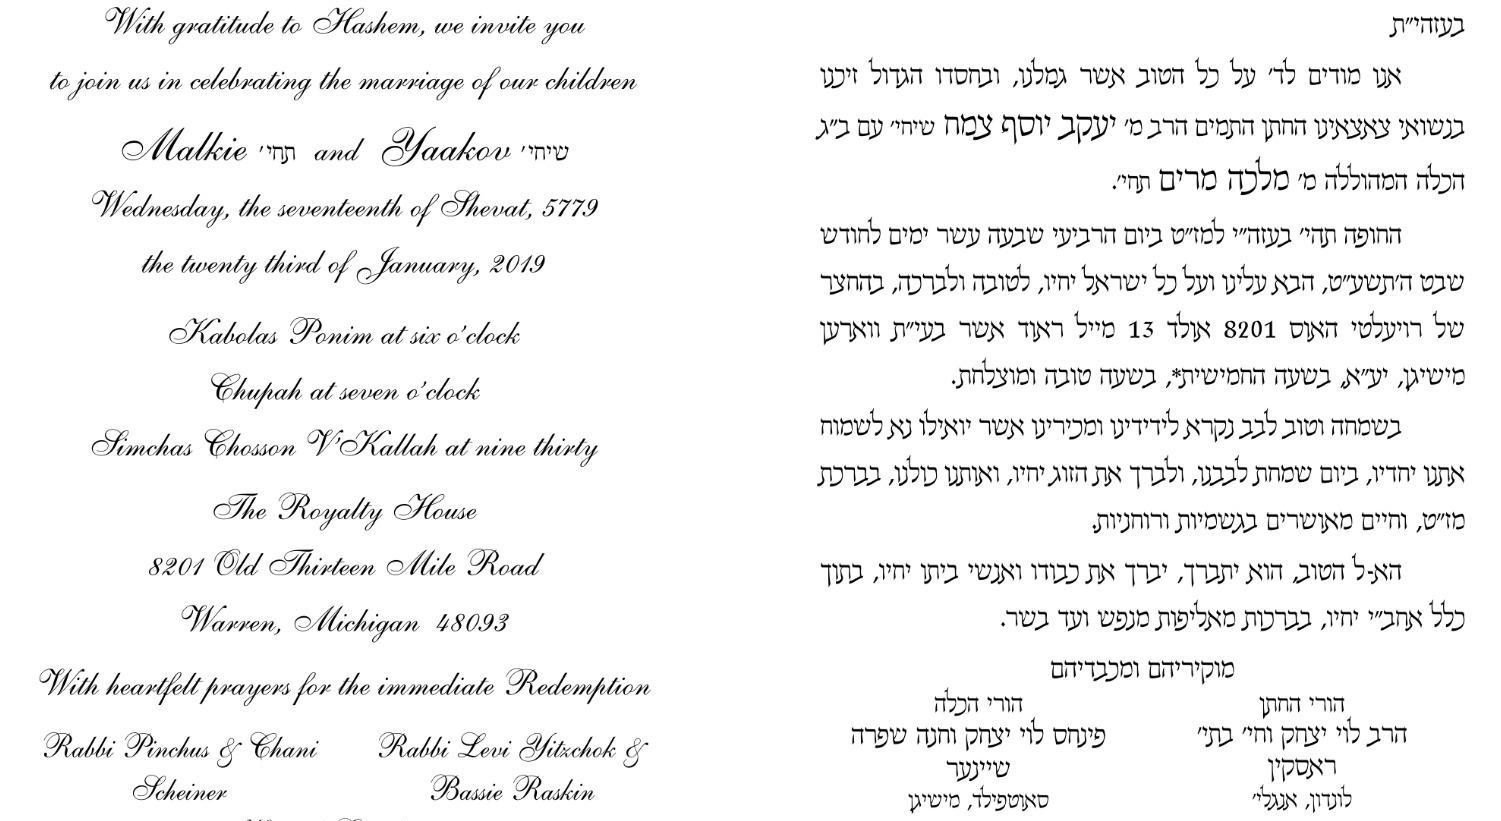 With gratitude to Hashem, we invite you
to join us in celebrating the marriage of our children
Malkie תחי' and Yaakov שיחי'
Wednesday, the seventeenth of Shevat, 5779
the twenty third of January, 2019
Kabolas Ponim at six o'clock
Chupah at seven o'clock
Simchas Chosson V'Kallah at nine thirty
The Royalty House
8201 Old Thirteen Mile Road
Warren, Michigan 48093
With heartfelt prayers for the immediate Redemption
Rabbi Pinchus & Chani
Scheiner
Rabbi Levi Yitzchok &
Bassie Raskin
בעזהי"ת
אנו מודים לד' על כל הטוב אשר גמלנו, ובחסדו הגדול זיכנו
בנשואי צאצאינו החתן התמים הרב מ' יעקב יוסף צמח שיחי' עם ב"ג
הכלה המהוללה מ' מלכה מרים תחי'.
החופה תהי' בעזה"י למז"ט ביום הרביעי שבעה עשר ימים לחודש
שבט ה'תשע"ט, הבא עלינו ועל כל ישראל יחיו, לטובה ולברכה, בהחצר
של רויעלטי האוס 8201 אולד 13 מייל ראוד אשר בעי"ת ווארען
מישיגן, יע"א, בשעה החמישית*, בשעה טובה ומוצלחת.
בשמחה וטוב לבב נקרא לידידינו ומכירינו אשר יואילו נא לשמוח
אתנו יחדיו, ביום שמחת לבבנו, ולברך את הזוג יחיו, ואותנו כולנו, בברכת
מז"ט, וחיים מאושרים בגשמיות ורוחניות.
הא-ל הטוב, הוא יתברך, יברך את כבודו ואנשי ביתו יחיו, בתוך
כלל אחב"י יחיו, בברכות מאליפות מנפש ועד בשר.
מוקיריהם ומכבדיהם
הורי החתן
הרב לוי יצחק וחי' בתי'
ראסקין
לונדון, אנגלי'
הורי הכלה
פינחס לוי יצחק וחנה שפרה
שיינער
סאוטפילד, מישיגן